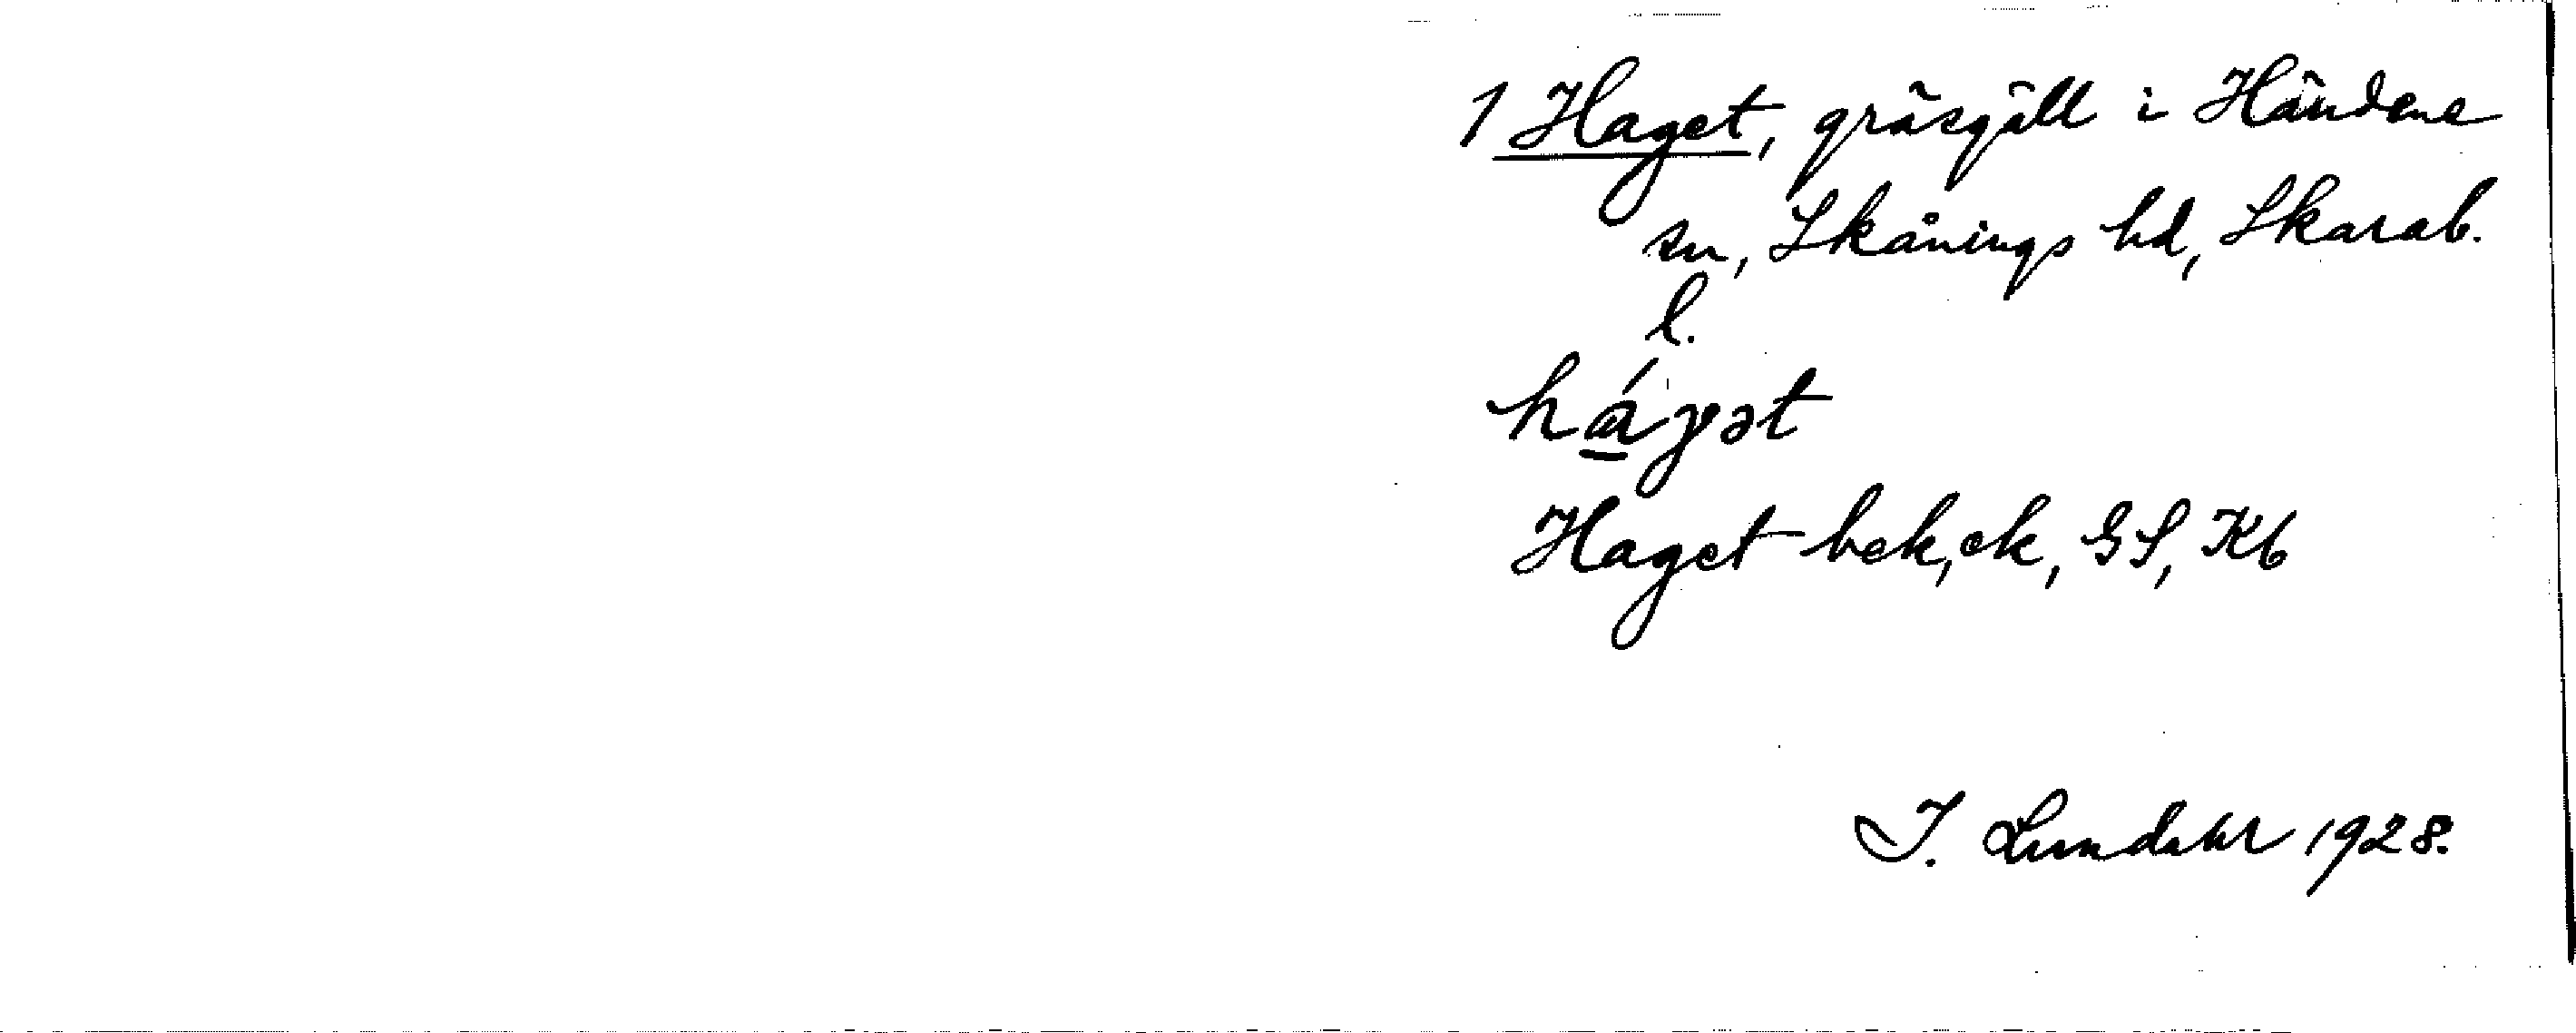 1 Haget, gräsgäll i Händene
sn, Skånings hd, Skarab.
l.
há̱γət
Haget bek, ek, GS, Kb
I. Lundahl 1928.